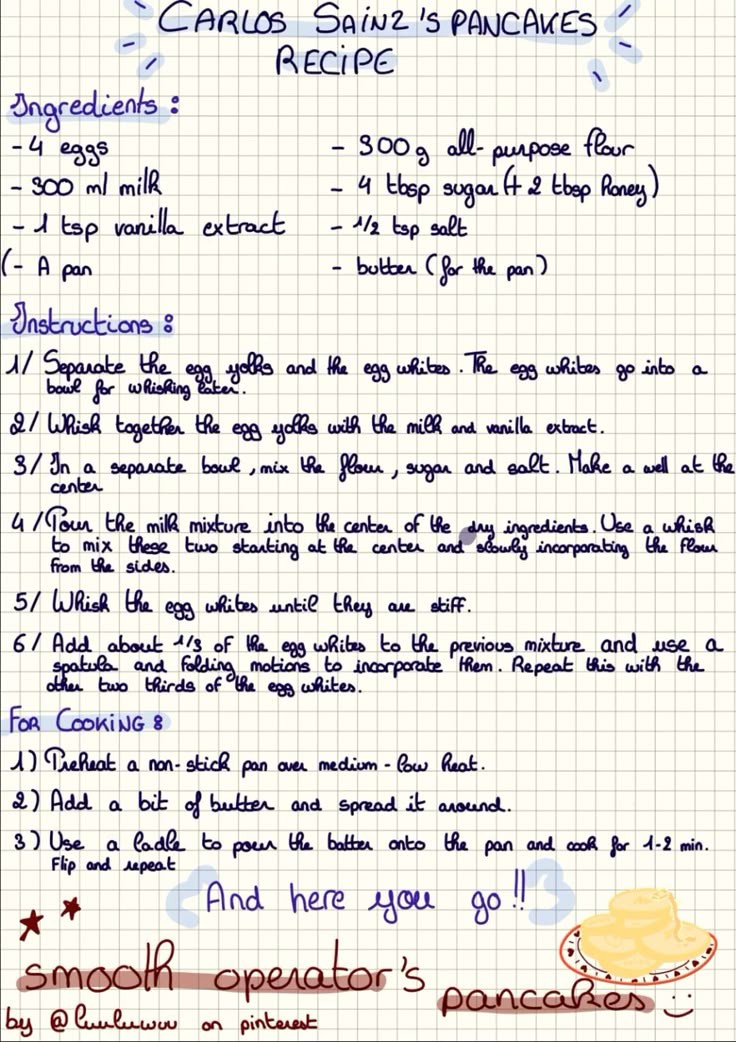 CARLOS SAiNZ'S PANCAKES
RECiPE
Ingredients :
- 4 eggs
- 300g all-purpose flour
- 300 ml milk
- 4 tbsp sugar (+ 2 tbsp honey)
- 1 tsp vanilla extract
- 1/2 tsp salt
(- A pan
- butter (for the pan)
Instructions :
1/ Separate the egg yolks and the egg whites. The egg whites go into a
bowl for whisking later.
2/ Whisk together the egg yolks with the milk and vanilla extract.
3/ In a separate bowl, mix the flour, sugar and salt. Make a well at the
center
4/ Pour the milk mixture into the center of the dry ingredients. Use a whisk
to mix these two starting at the center and slowly incorporating the flour
from the sides.
5/ Whisk the egg whites until they are stiff.
6/ Add about 1/3 of the egg whites to the previous mixture and use a
spatula and folding motions to incorporate them. Repeat this with the
other two thirds of the egg whites.
FOR COOKiNG :
1) Preheat a non-stick pan over medium-low heat.
2) Add a bit of butter and spread it around.
3) Use a ladle to pour the batter onto the pan and cook for 1-2 min.
Flip and repeat
And here you go !!
smooth operator's
pancakes :)
by @luuluwuu on pinterest